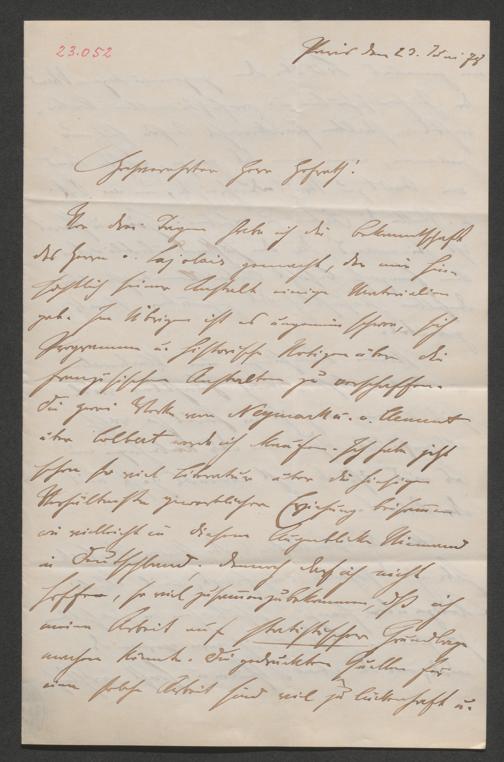 23.052
Paris den 23. Juni 78
Hochverehrter Herr Hofrath!
Vor drei Tagen habe ich die Bekanntschaft
des Herrn v. Lajolais gemacht, der mir hin-
sichtlich seiner Anstalt einige Materialien
gab. Im Übrigen ist es ungemein schwer, sich
Programme u. historische Notizen über die
französischen Anstalten zu verschaffen.
Die grossen Werke von Neymarck u. v. Clement
über Colbert werde ich kaufen. Ich habe jetzt
schon so viel Literatur über die hiesigen
Verhältnisse gewerblicher Erziehung beisammen
wie vielleicht in diesem Augenblicke Niemand
in Deutschland; dennoch darf ich nicht
hoffen, so viel zusammenzubekommen, daß ich
meine Arbeit auf statistischer Grundlage
machen könnte. Die gedruckten Quellen für
eine solche Arbeit sind viel zu lückenhaft u.